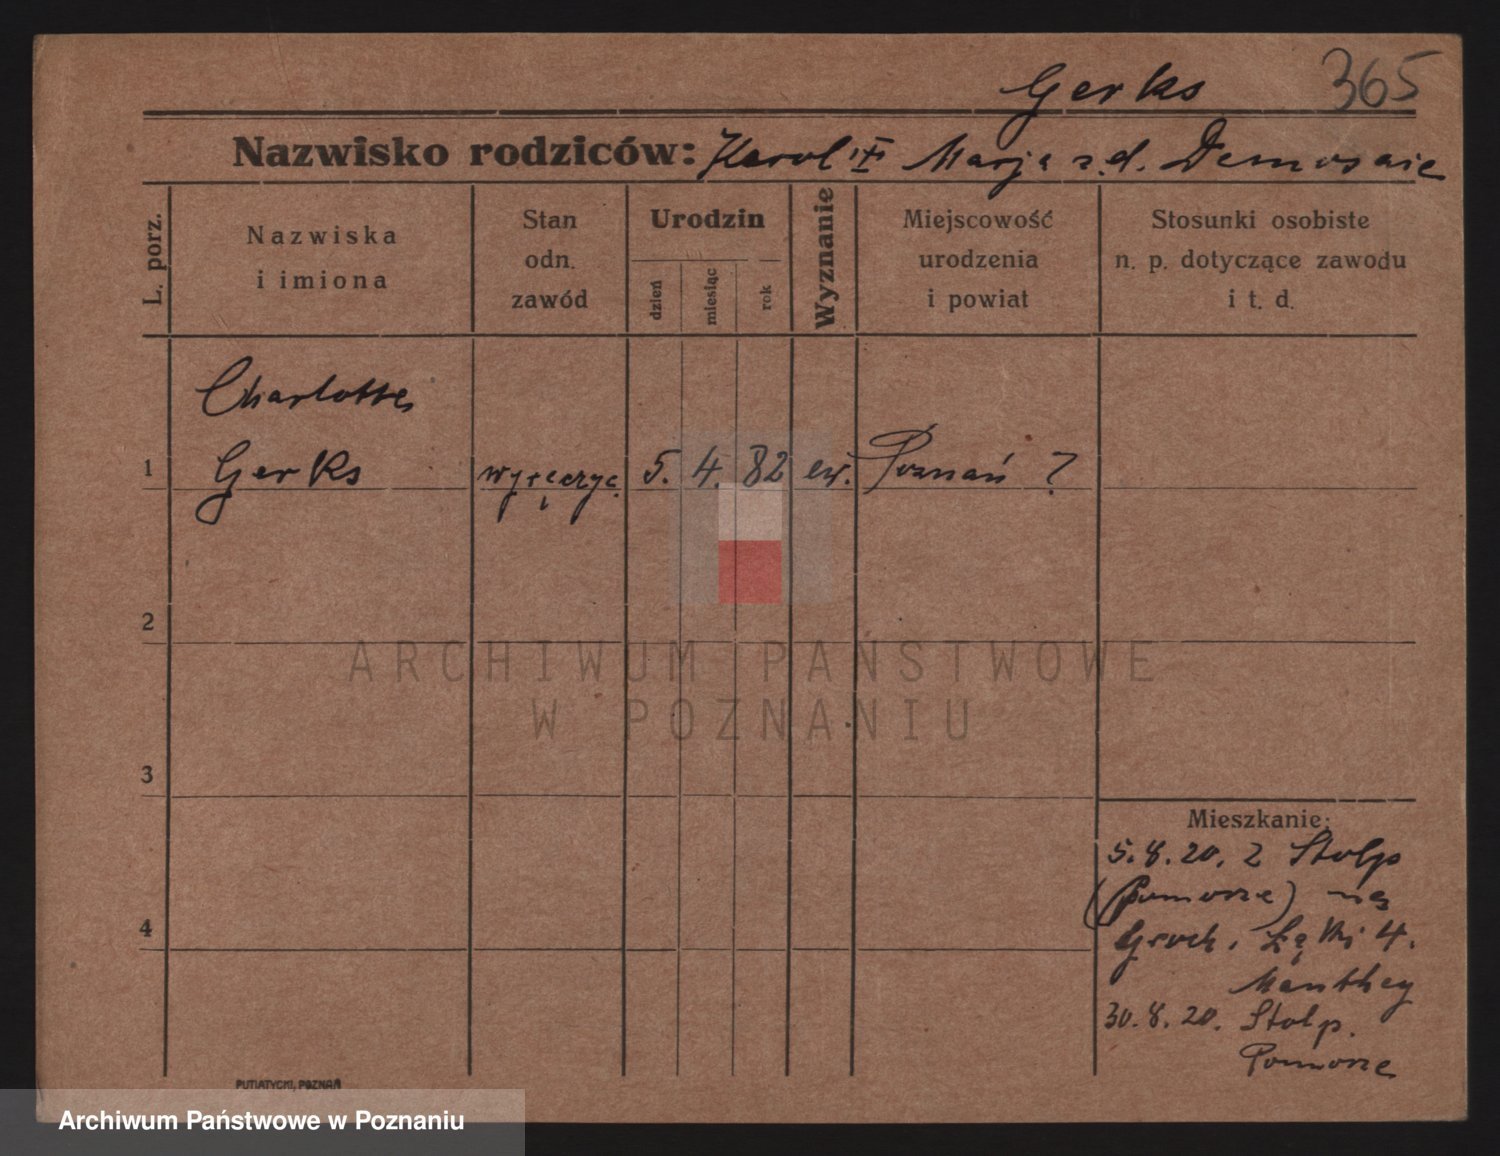 Gerks 365
Nazwisko rodziców: Karol Marja z d.
L. porz.
Nazwiska
i imiona
Stan
odn.
zawód
Urodzin
dzień
miesiąc
rok
Wyznanie
Miejscowość
urodzenia
i powiat
Stosunki osobiste
n. p. dotyczące zawodu
i t. d.
Charlotte
1 Gerks 5. 4. 82 ew. Poznań ?
2
3
4
ARCHIWUM PAŃSTWOWE
W POZNANIU
Mieszkanie:
5.8.20. z Stolp
(Pomorze)
Groch. Łąki 4.
Manthey
30.8.20. Stolp.
Pomorze
PUTIATYCKI, POZNAŃ
Archiwum Państwowe w Poznaniu